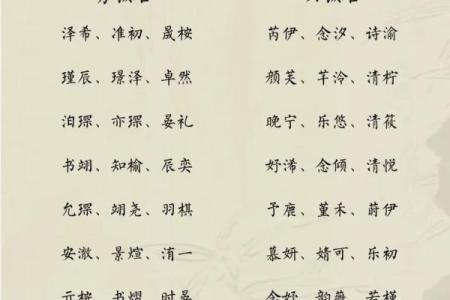 泽希、准初、晟桉
芮伊、念汐、诗渝
瑾辰、璟泽、卓然
颜芙、芊泠、清柠
洎琛、亦琛、晏礼
晚宁、乐悠、清筱
书翊、知榆、辰奕
妤浠、念倾、清悦
允琛、翊尧、羽棋
予鹿、堇禾、蔚伊
安澈、景煊、洧一
慕妍、婧可、乐初